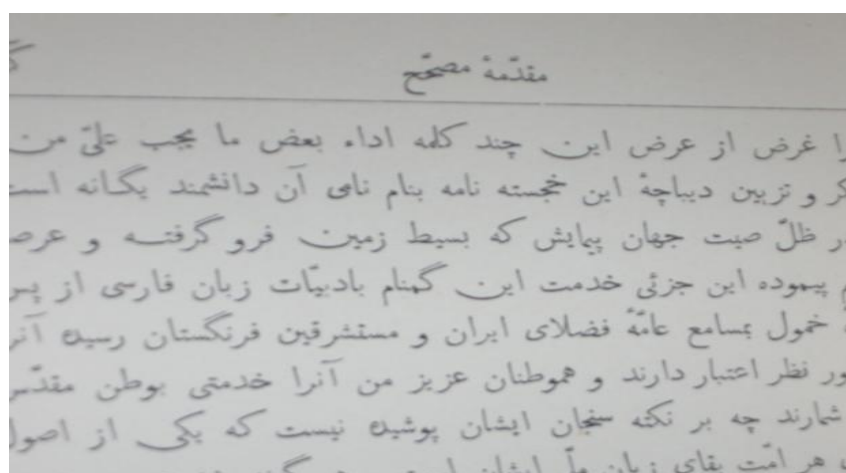 مقدّمهٔ مصحّح
را غرض از عرض این چند کلمه اداء بعض ما یجب علیّ من
و تزیین دیباچهٔ این خجسته نامه بنام نامی آن دانشمند یگانه است
ظلّ صیت جهان پیمایش که بسیط زمین فرو گرفته و
پیموده این جزئی خدمت این گمنام بادبیّات زبان فارسی از
خمول بمسامع عامّهٔ فضلای ایران و مستشرقین فرنگستان رسیده
نظر اعتبار دارند و هموطنان عزیز من آنرا خدمتی بوطن مقدّس
شمارند چه بر نکته سنجان ایشان پوشیده نیست که یکی از اصول
هر امّت بقای زبان ملّی ایشان است